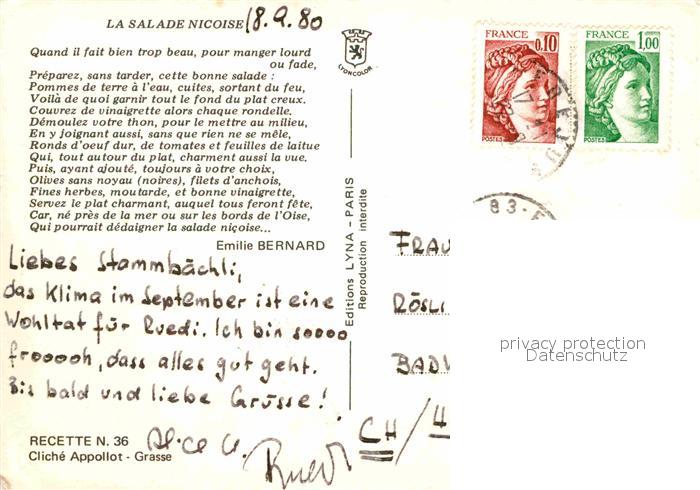 LA SALADE NICOISE 18.9.80
Quand il fait bien trop beau, pour manger lourd
ou fade,
Préparez, sans tarder, cette bonne salade :
Pommes de terre à l'eau, cuites, sortant du feu,
Voilà de quoi garnir tout le fond du plat creux.
Couvrez de vinaigrette alors chaque rondelle.
Démoulez votre thon, pour le mettre au milieu,
En y joignant aussi, sans que rien ne se mêle,
Ronds d'oeuf dur, de tomates et feuilles de laitue
Qui, tout autour du plat, charment aussi la vue.
Puis, ayant ajouté, toujours à votre choix,
Olives sans noyau (noires), filets d'anchois,
Fines herbes, moutarde, et bonne vinaigrette,
Servez le plat charmant, auquel tous feront fête,
Car, né près de la mer ou sur les bords de l'Oise,
Qui pourrait dédaigner la salade niçoise...
Emilie BERNARD
Liebes Stammbächli,
das Klima im September ist eine
Wohltat für Ruedi. Ich bin soooo
froooooh, dass alles gut geht.
Bis bald und liebe Grüsse!
Alice u.
Ruedi
RECETTE N. 36
Cliché Appollot - Grasse
LYONCOLOR
Editions LYNA - PARIS
Reproduction interdite
FRANCE
0,10
POSTES
FRANCE
1,00
POSTES
83-
FRAU
RÖSLI
BAD
CH /
privacy protection
Datenschutz